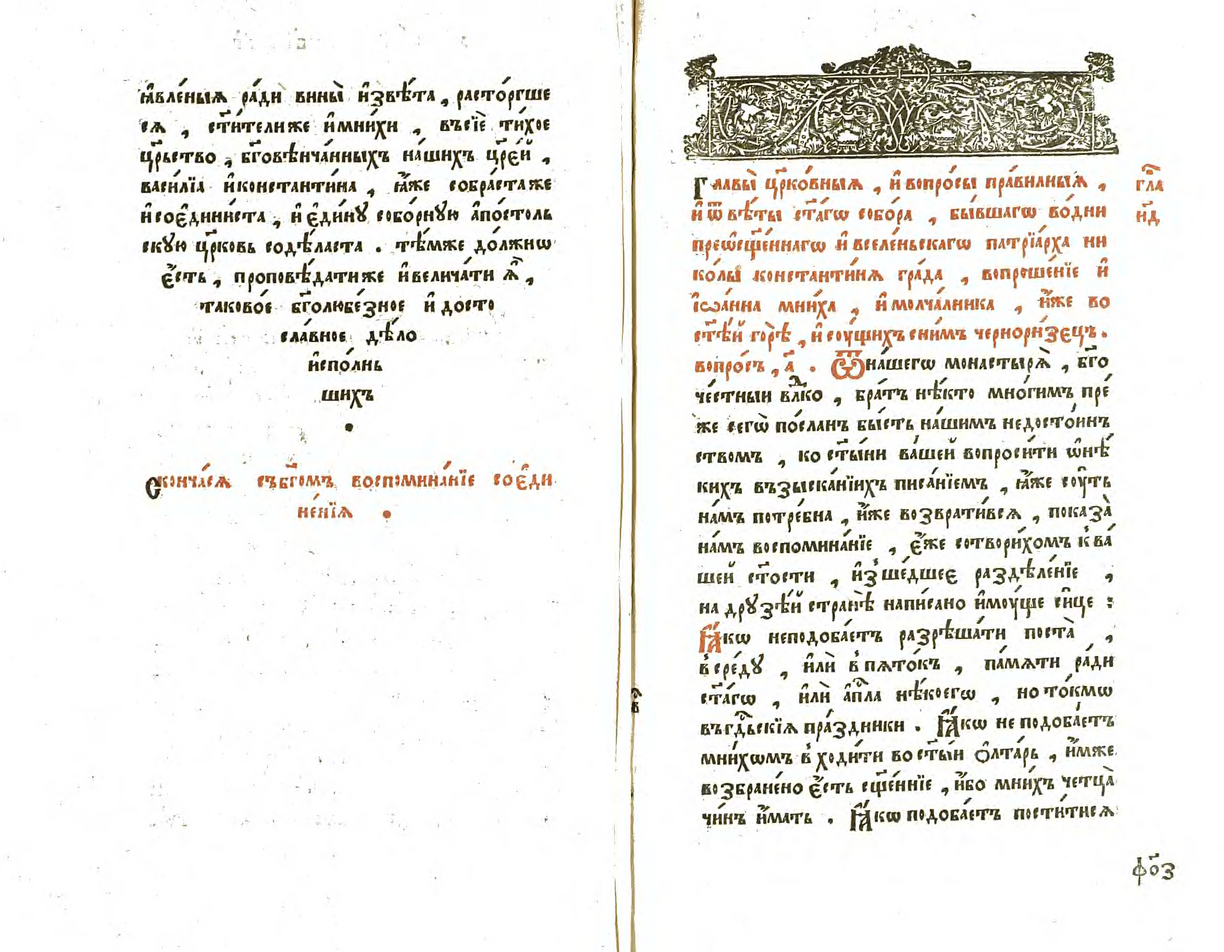 ꙗ҆вле́ныѧ ра́ди вины̀ и҆звѣ́та , расто́ргше
сѧ , ст҃и́тели же и҆ мни́хи , въ сїѐ ти́хое
цр҃ьство , бг҃овѣнча́нныхъ на́шихъ цр҃е́й ,
васи́лїа и҆ константи́на , ꙗ҆́же собра́ста же
и҆ соє҆дини́ста , и҆ є҆ди́нꙋ собо́рнꙋю а҆по́столь
скꙋю цр҃ковь содѣ́ласта . тѣ́мже до́лжнѡ
є҆́сть , проповѣ́дати же и҆ велича́ти ѧ҆̀ ,
таково́е бг҃олюбе́зное и҆ досто
сла́вное дѣ́ло
и҆спо́лнь
шихъ
.
Сконча́сѧ съ бг҃омъ воспомина́нїе соє҆ди
не́нїѧ .
Главы̀ цр҃ко́вныѧ , и҆ вопро́сы пра́вилныѧ ,
и҆ ѿвѣ́ты ст҃а́гѡ собо́ра , бы́вшагѡ во́ дни
преѡ҆сщ҃е́ннагѡ и҆ вселе́ньскагѡ патрїа́рха ни
ко́лы̀ константи́нѧ гра́да , вопроше́нїе и҆
і҆ѡа́нна мни́ха , и҆ молча́лника , и҆́же во
ст҃ѣ́й горѣ̀ , и҆ сꙋ́щихъ с ни́мъ чернори́зєцъ .
вопро́съ , а҃ . Ѿ на́шегѡ монастырѧ̀ , бг҃о
че́стныи влⷣко , бра́тъ нѣ́кто мно́гимъ пре́
же сегѡ̀ по́сланъ бы́сть на́шимъ недосто́инъ
ствомъ , ко ст҃ы́ни ва́шей вопроси́ти ѡ҆ нѣ́
кихъ възыска́нїихъ писа́нїемъ , ꙗ҆́же сꙋ́ть
на́мъ потре́бна , и҆́же возврати́всѧ , показа̀
на́мъ воспомина́нїе , є҆́же сотвори́хомъ к ва́
шей ст҃ости , и҆зше́дшеє раздѣле́нїе ,
на дрꙋзѣ́й странѣ̀ написано и҆мꙋ́ще си́це :
Ꙗ҆́кѡ неподоба́етъ разрѣша́ти поста̀ ,
в сре́дꙋ , и҆лѝ в пѧто́къ , па́мѧти ра́ди
ст҃а́гѡ , и҆лѝ а҆пⷭ҇ла нѣ́коегѡ , но то́кмѡ
въ гдⷭ҇ьскїѧ пра́здники . Ꙗ҆́кѡ не подоба́етъ
мни́хѡмъ в ходи́ти во ст҃ы́и ѻ҆лта́рь , и҆́мже
возбранено̀ є҆́сть сщ҃е́ннїе , и҆́бо мни́хъ четца̀
чи́нъ и҆́мать . Ꙗ҆́кѡ подоба́етъ пости́тисѧ
глⷡ҇а
н҃д
фо҃з